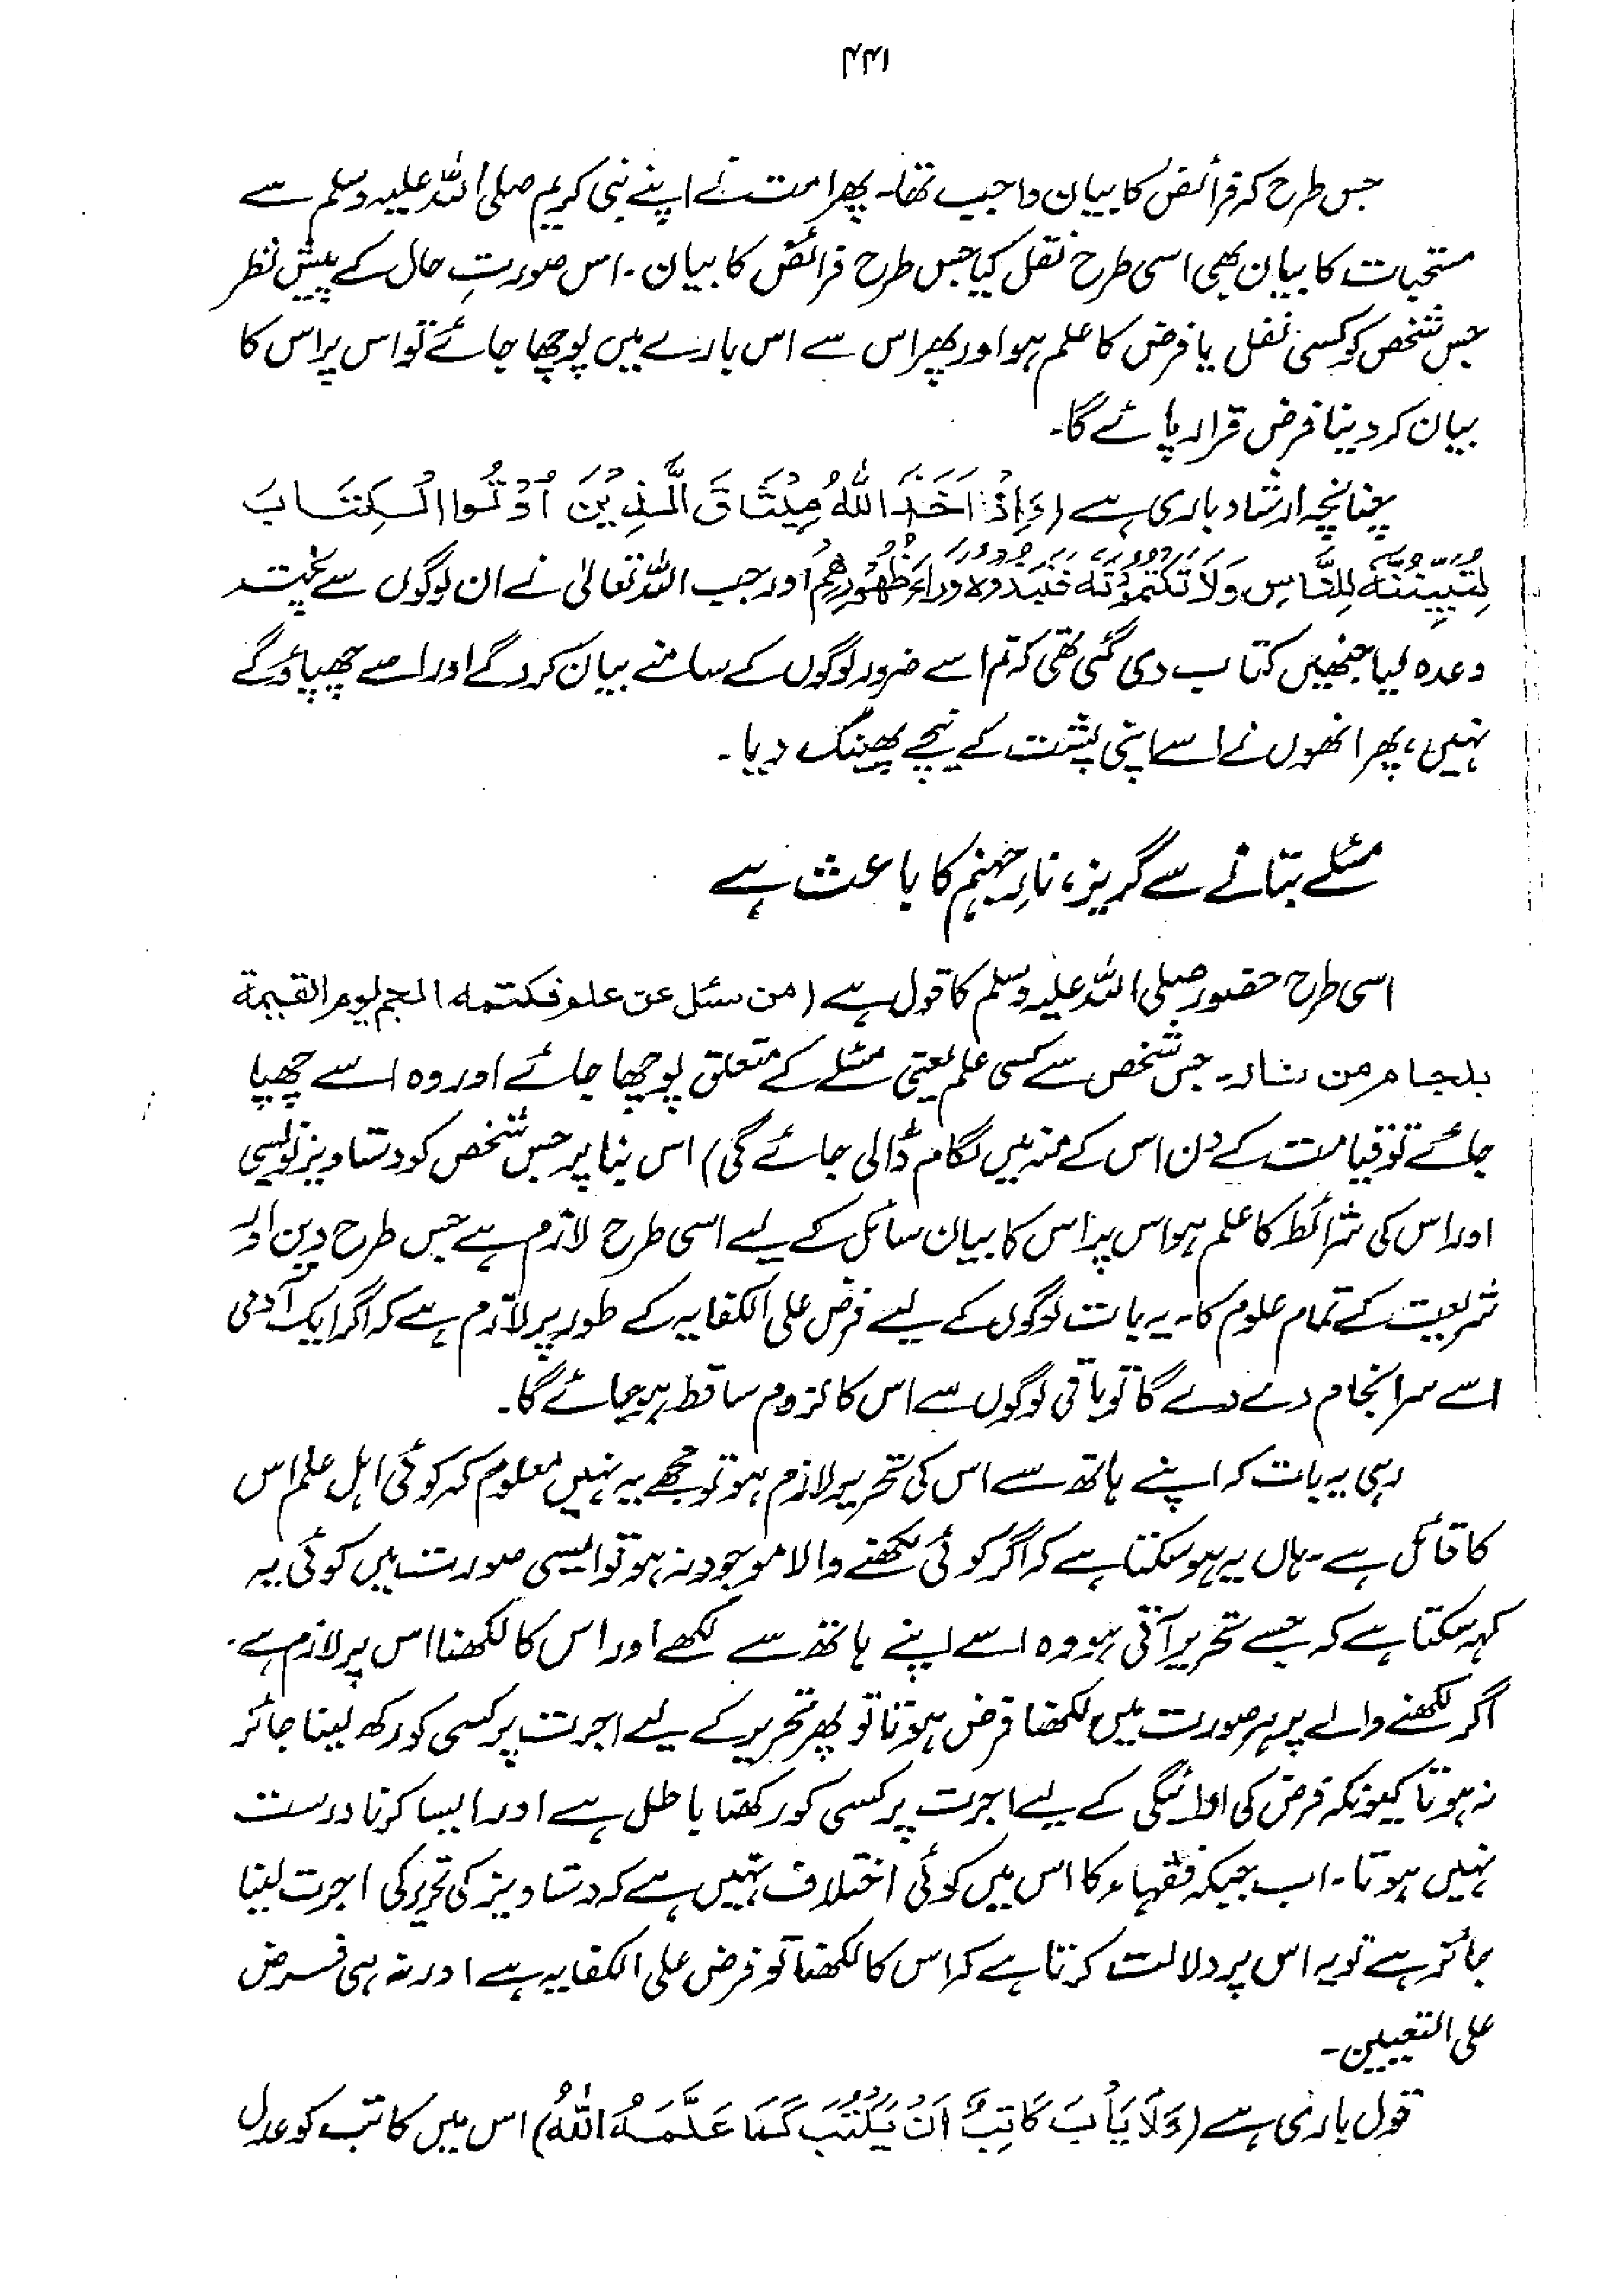 ۴۴۱
جس طرح کہ فرائض کا بیان واجب تھا۔ پھر امت نے اپنے نبی کریم صلی اللہ علیہ وسلم سے
مستحبات کا بیان بھی اسی طرح نقل کیا جس طرح فرائض کا بیان۔ اس صورتِ حال کے پیش نظر
جس شخص کو کسی نفل یا فرض کا علم ہو اور پھر اس سے اس بارے میں پوچھا جائے تو اس پر اس کا
بیان کر دینا فرض قرار پائے گا۔
چنانچہ ارشاد باری ہے (وَاِذْ اَخَذَ اللّٰهُ مِيْثَاقَ الَّذِيْنَ اُوْتُوا الْكِتَابَ
لِتُبَيِّنُنَّهٗ لِلنَّاسِ وَلَا تَكْتُمُوْنَهٗ فَنَبَذُوْهُ وَرَاءَ ظُهُوْرِهِمْ اور جب اللہ تعالیٰ نے ان لوگوں سے پختہ
وعدہ لیا جنھیں کتاب دی گئی تھی کہ تم اسے ضرور لوگوں کے سامنے بیان کرو گے اور اسے چھپاؤ گے
نہیں، پھر انھوں نے اسے اپنی پشت کے نیچے پھینک دیا۔
مسئلے بتانے سے گریز، نارِ جہنم کا باعث ہے
اسی طرح حضور صلی اللہ علیہ وسلم کا قول ہے (من سئل عن علم فکتمه الجم یوم القیمة
بلجام من نار۔ جس شخص سے کسی علم یعنی مسئلے کے متعلق پوچھا جائے اور وہ اسے چھپا
جائے تو قیامت کے دن اس کے منہ میں لگام ڈالی جائے گی) اس بنا پر جس شخص کو دستاویز نویسی
اور اس کی شرائط کا علم ہو اس پر اس کا بیان سائل کے لیے اسی طرح لازم ہے جس طرح دین اور
شریعت کے تمام علوم کا۔ یہ بات لوگوں کے لیے فرض علی الکفایہ کے طور پر لازم ہے کہ اگر ایک آدمی
اسے سر انجام دے دے گا تو باقی لوگوں سے اس کا لزوم ساقط ہو جائے گا۔
رہی یہ بات کہ اپنے ہاتھ سے اس کی تحریر لازم ہو تو مجھے یہ نہیں معلوم کہ کوئی اہل علم اس
کا قائل ہے۔ ہاں یہ ہو سکتا ہے کہ اگر کوئی لکھنے والا موجود نہ ہو تو ایسی صورت میں کوئی یہ
کہہ سکتا ہے کہ جسے تحریر آتی ہو وہ اسے اپنے ہاتھ سے لکھے اور اس کا لکھنا اس پر لازم ہے۔
اگر لکھنے والے پر ہر صورت میں لکھنا فرض ہوتا تو پھر تحریر کے لیے اجرت پر کسی کو رکھ لینا جائز
نہ ہوتا کیونکہ فرض کی ادائیگی کے لیے اجرت پر کسی کو رکھنا باطل ہے اور ایسا کرنا درست
نہیں ہوتا۔ اب جبکہ فقہاء کا اس میں کوئی اختلاف نہیں ہے کہ دستاویز کی تحریر کی اجرت لینا
جائز ہے تو یہ اس پر دلالت کرتا ہے کہ اس کا لکھنا نہ تو فرض علی الکفایہ ہے اور نہ ہی فرض
علی التعیین۔
قول باری ہے (وَلَا يَأْبَ كَاتِبٌ اَنْ يَكْتُبَ كَمَا عَلَّمَهُ اللّٰهُ) اس میں کاتب کو عدل